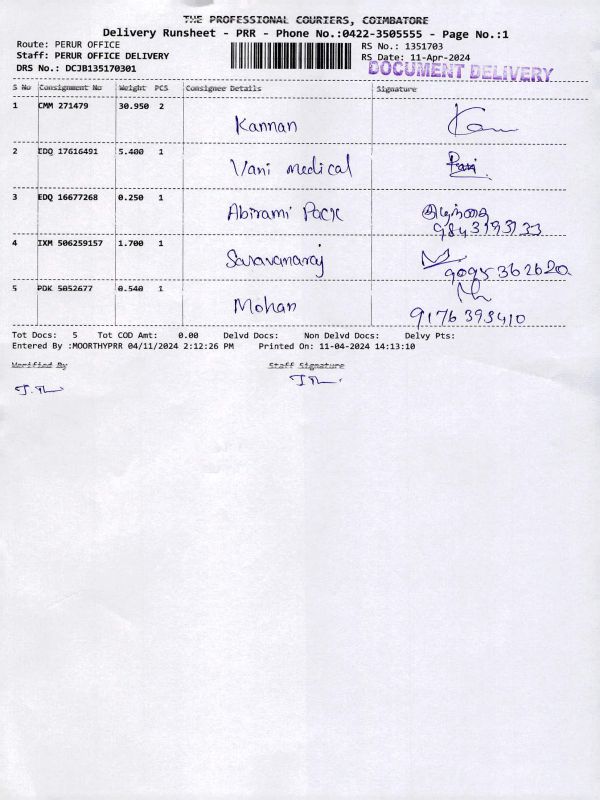 THE PROFESSIONAL COURIERS, COIMBATORE
Delivery Runsheet - PRR - Phone No.:0422-3505555 - Page No.:1
Route: PERUR OFFICE RS No.: 1351703
Staff: PERUR OFFICE DELIVERY RS Date: 11-Apr-2024
DRS No.: DCJB135170301 DOCUMENT DELIVERY
S No Consignment No Weight PCS Consignee Details Signature
1 CMM 271479 30.950 2 Kannan
2 EDQ 17616491 5.400 1 Vani medical
3 EDQ 16677268 0.250 1 Abirami Pack
9843193133
4 IXM 506259157 1.700 1 Saravanaraj
9095362620
5 PDK 5052677 0.540 1 Mohan
9176393410
Tot Docs: 5 Tot COD Amt: 0.00 Delvd Docs: Non Delvd Docs: Delvy Pts:
Entered By :MOORTHYPRR 04/11/2024 2:12:26 PM Printed On: 11-04-2024 14:13:10
Verified By Staff Signature